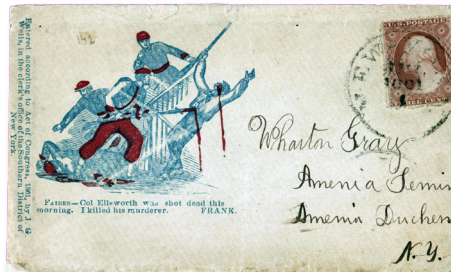 Entered according to Act of Congress, 1861, by J. G.
Wells, in the clerk's office of the Southern District of
New York.
FATHER—Col Ellsworth was shot dead this
morning. I killed his murderer. FRANK.
U.S. POSTAGE
THREE CENTS
Wharton Gray
Amenia Semi
Amenia Duchen
N.Y.